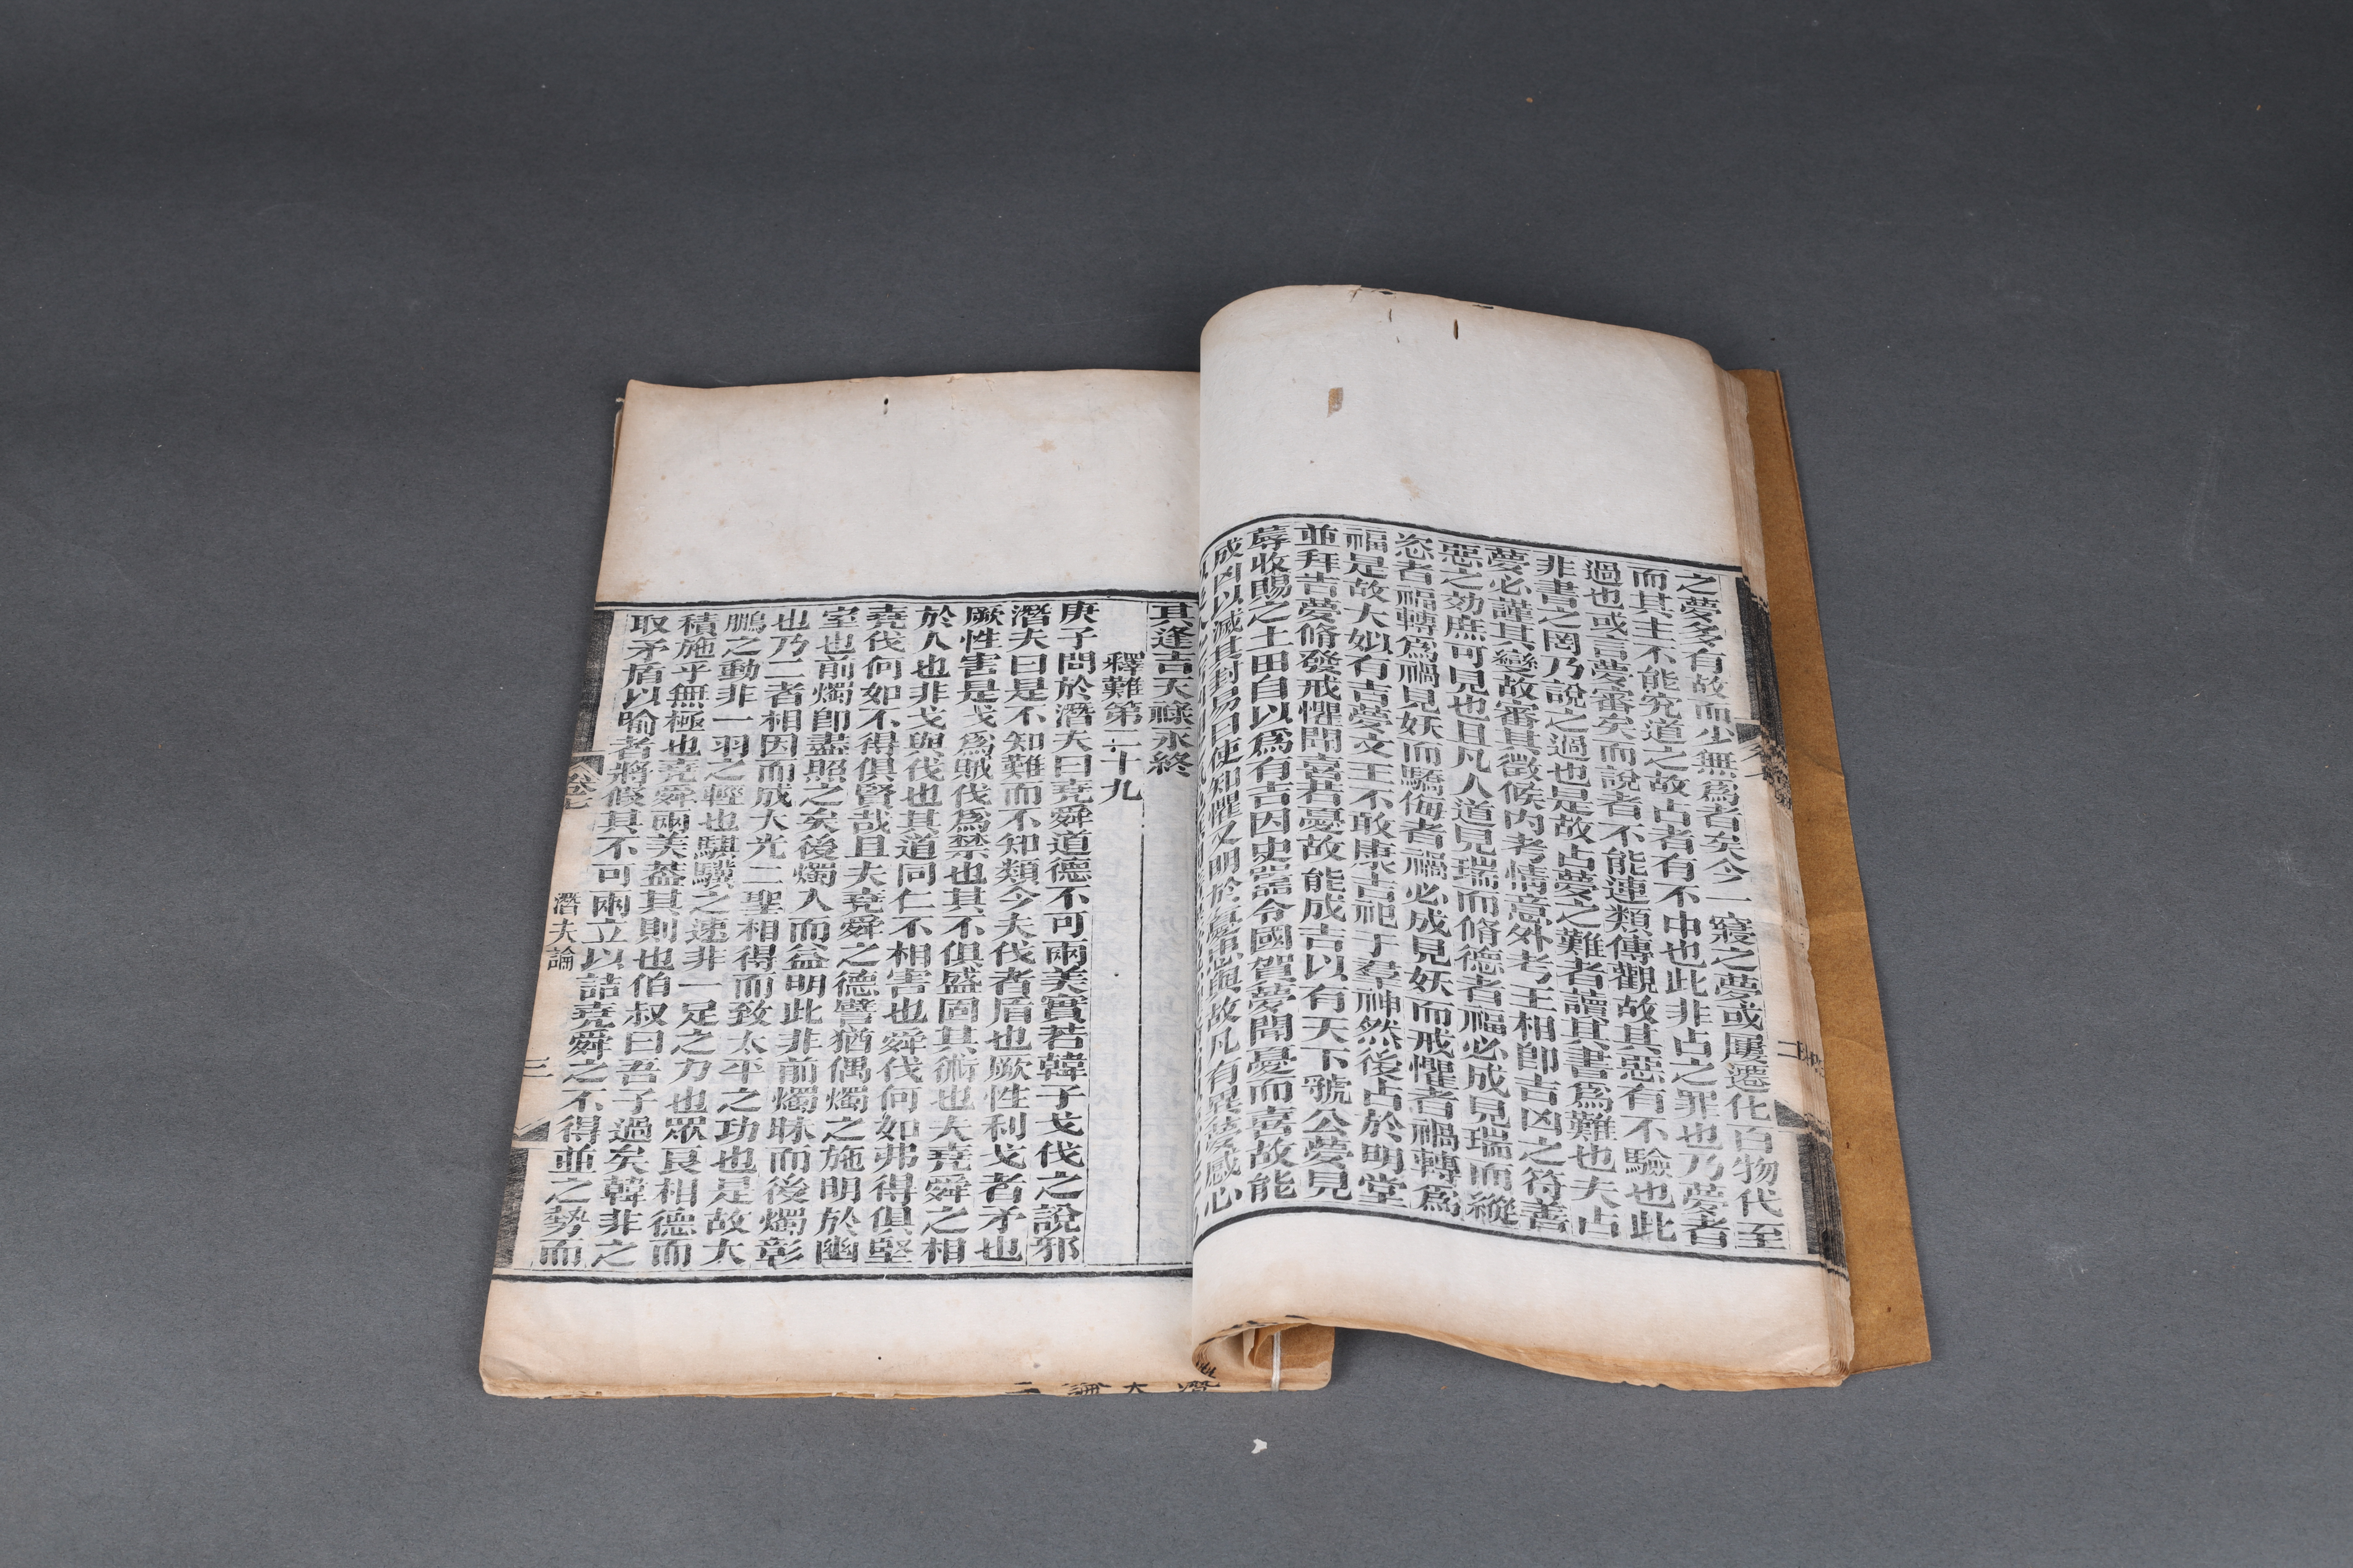 之夢多有故而少無爲者矣今一寢之夢或屢遷化百物代至
而其主不能究道之故占者有不中也此非占之罪也乃夢者
過也或言夢審矣而說者不能連類傳觀故其惡有不驗也此
非書之罔乃說之過也是故占夢之難者讀其書爲難也夫占
夢必謹其變故審其徵候内考情意外考王相卽吉凶之符善
惡之効庶可見也且凡人道見瑞而脩德者福必成見瑞而縱
恣者福轉爲禍見妖而驕侮者禍必成見妖而戒懼者禍轉爲
福是故大姒有吉夢文王不敢康吉祀于羣神然後占於明堂
並拜吉夢脩發戒懼聞喜若憂故能成吉以有天下虢公夢見
蓐收賜之土田自以爲有吉因史嚚令國賀夢聞憂而喜故能
成凶以滅其封易曰使知懼又明於憂患與故凡有異夢感心
其逢吉天祿永終
釋難第二十九
庚子問於潛夫曰堯舜道德不可兩美實若韓子戈伐之說邪
潛夫曰是不知難而不知類今夫伐者盾也厥性利戈者矛也
厥性害是戈爲賊伐爲禁也其不俱盛固其術也夫堯舜之相
於人也非戈與伐也其道同仁不相害也舜伐何如弗得俱堅
堯伐何如不得俱賢哉且夫堯舜之德譬猶偶燭之施明於幽
室也前燭卽盡照之矣後燭入而益明此非前燭昧而後燭彰
也乃二者相因而成大光二聖相得而致太平之功也是故大
鵬之動非一羽之輕也騏驥之速非一足之力也眾良相德而
積施乎無極也堯舜兩美蓋其則也伯叔曰吾子過矣韓非之
取矛盾以喻者將假其不可兩立以詰堯舜之不得並之勢而
卷七
潛夫論
三
二